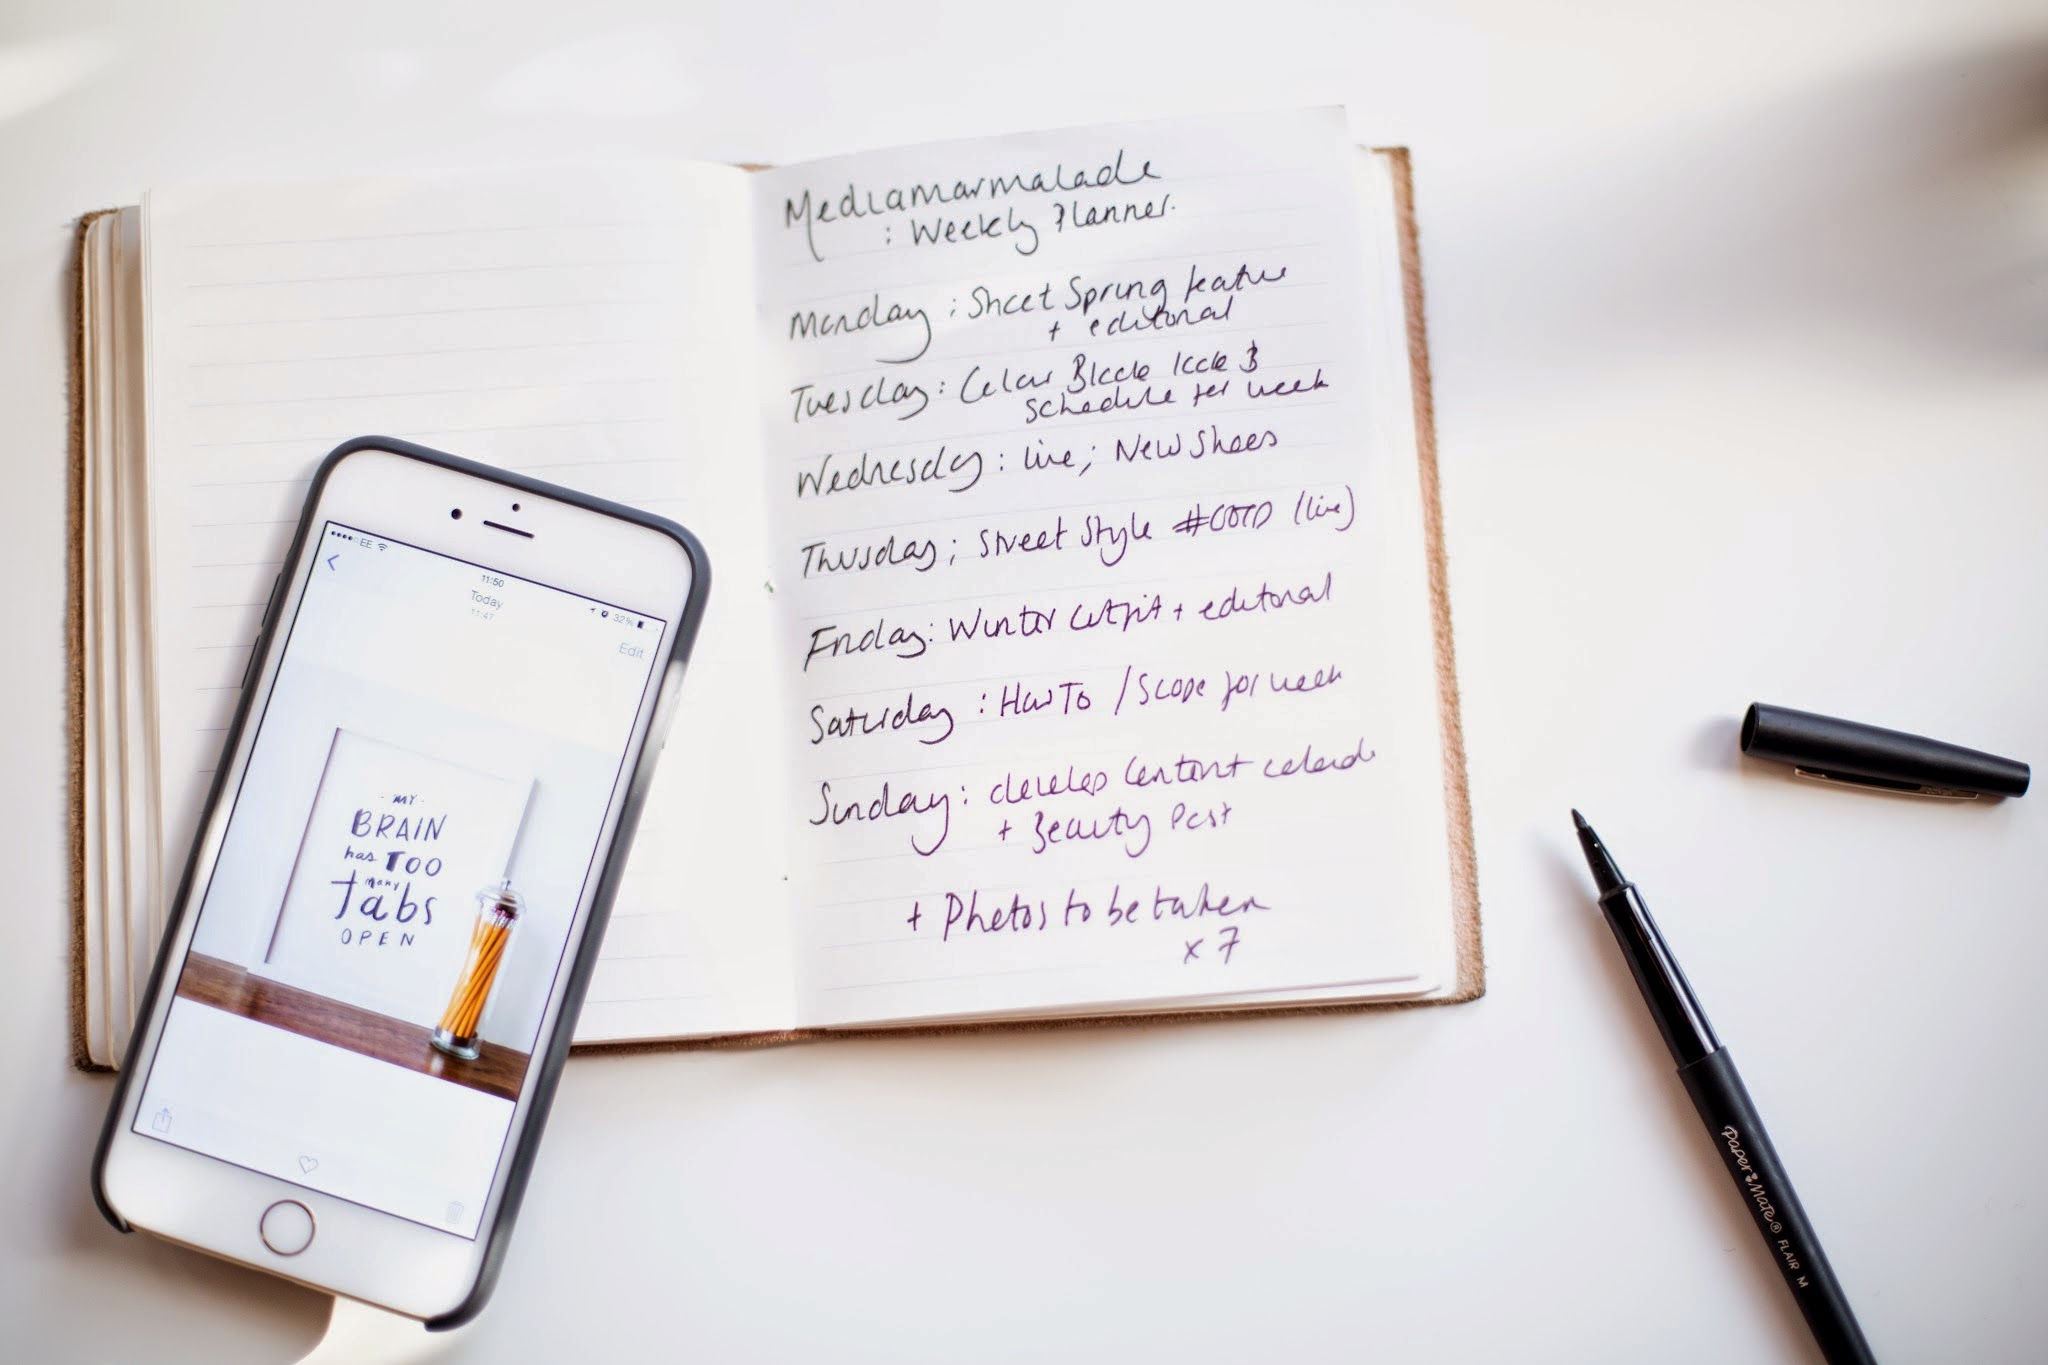 Mediamarmalade
: Weekly Planner.
Monday : Shoot Spring feature
+ editorial
Tuesday : Colour Block look &
schedule for week
Wednesday : live; New Shoes
Thursday ; Street Style #OOTD (live)
Friday : Winter outfit + editorial
Saturday : How To / Scope for week
Sunday : develop Content calendar
+ Beauty Post
+ Photos to be taken
x 7
EE
11:50
32%
Today
11:47
Edit
MY
BRAIN
has TOO
many
Tabs
OPEN
Paper Mate® FLAIR M